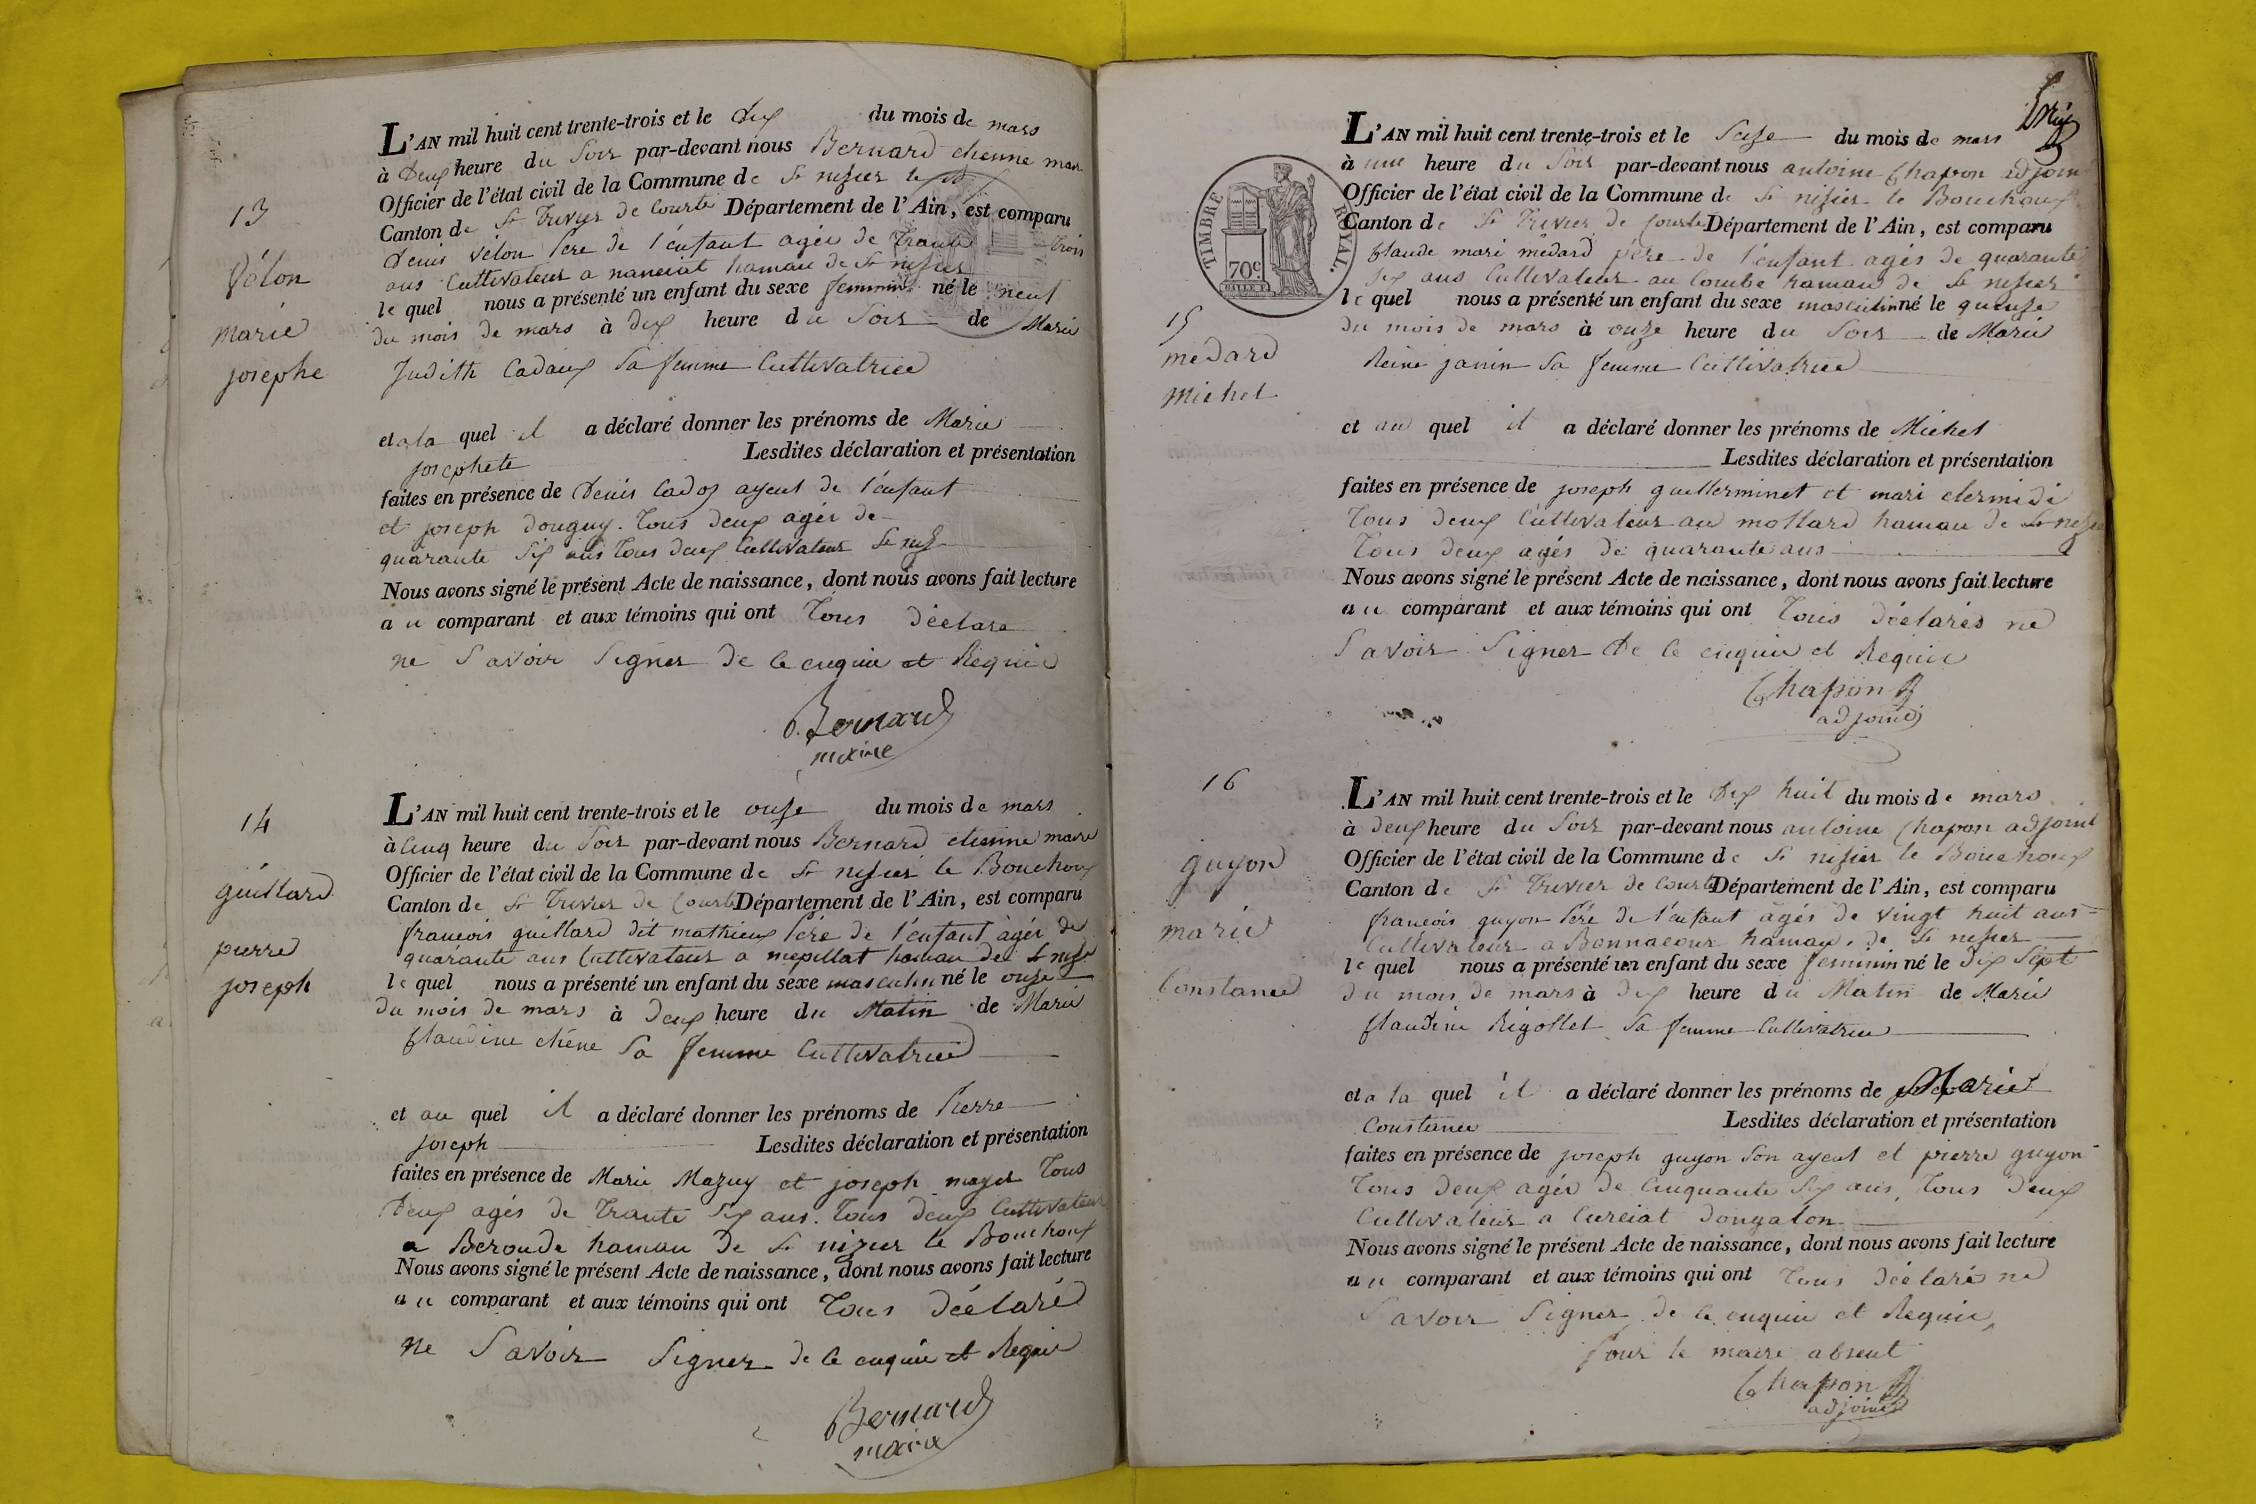 13
Vélon
marie
josephe
L'AN mil huit cent trente-trois et le dix du mois de mars
à deux heure du Soir par-devant nous Bernard etienne maire
Officier de l'état civil de la Commune de St nisier le B
Canton de St Trivier de Courte Département de l'Ain, est comparu
denis vélon Pere de l'enfant agée de Trante trois
ans Cultivateur a nanciat hamau de St nisier
le quel nous a présenté un enfant du sexe feminin né le neuf
du mois de mars à dix heure du Soir de Marie
Judith Cadoux Sa femme Cultivatrice
et a la quel il a déclaré donner les prénoms de Marie
josephete Lesdites déclaration et présentation
faites en présence de denis Cadoz ayeul de l'enfant
et joseph donguy. Tous deux agér de
quarante Six ans Tous deux Cultivateur St niz
Nous avons signé le présent Acte de naissance, dont nous avons fait lecture
au comparant et aux témoins qui ont Tous déclara
ne Savoir Signer de ce enquie et Requie
B. Bernard
maire
14
guillard
pierre
joseph
L'AN mil huit cent trente-trois et le onze du mois de mars
à Cinq heure du Soir par-devant nous Bernard etienne maire
Officier de l'état civil de la Commune de St nisier le Bouchoux
Canton de St Trivier de Courte Département de l'Ain, est comparu
francois guillard dit mathieux Pére de l'enfant àgér de
quarante ans Cultivateur a mepillat hamau de St nizie
le quel nous a présenté un enfant du sexe masculin né le onze
du mois de mars à deux heure du Matin de Marie
Claudine chêne Sa femme Cultivatrice
et au quel il a déclaré donner les prénoms de Pierre
joseph Lesdites déclaration et présentation
faites en présence de Marie Mazuy et joseph mayet Tous
deux agés de Trante Six ans. Tous deux Cultivateur
a Beroude hamau de St nizier le Bouchoux
Nous avons signé le présent Acte de naissance, dont nous avons fait lecture
au comparant et aux témoins qui ont Tous déclaré
ne Savoir Signer de ce enquie et Requie
Bernard
maire
TIMBRE ROYAL.
70c
15
médard
Michel
L'AN mil huit cent trente-trois et le Seize du mois de mars
à une heure du Soir par-devant nous antoine Chapon adjoint
Officier de l'état civil de la Commune de St nisier le Bouchoux
Canton de St Trivier de Courte Département de l'Ain, est comparu
Claude mari médard pére de l'enfant agés de quarante
Six ans Cultivateur au Combe hamau de St nisier
le quel nous a présenté un enfant du sexe masculin né le quinze
du mois de mars à onze heure du Soir de Marie
Reine janin Sa femme Cultivatrice
et au quel il a déclaré donner les prénoms de Michel
Lesdites déclaration et présentation
faites en présence de joseph guillerminet et mari clermidi
Tous deux Cultivateur au mollard hamau de St nizie
Tous deux agés de quarante ans
Nous avons signé le présent Acte de naissance, dont nous avons fait lecture
au comparant et aux témoins qui ont Tous déclarés ne
Savoir Signer de ce enquie et Requie
Chapon
adjoint
16
guyon
marie
Constance
L'AN mil huit cent trente-trois et le dix huit du mois de mars
à deux heure du Soir par-devant nous antoine Chapon adjoint
Officier de l'état civil de la Commune de St nisier le Bouchoux
Canton de St Trivier de Courte Département de l'Ain, est comparu
francois guyon Pére de l'enfant agés de vingt huit ans
Cultivateur a Bonnacour hamau de St nisier
le quel nous a présenté un enfant du sexe feminin né le dix Sept
du mois de mars à dix heure du Matin de Marie
Claudine Rigollet Sa femme Cultivatrice
et a la quel il a déclaré donner les prénoms de Marie
Constance Lesdites déclaration et présentation
faites en présence de joseph guyon Son ayeul et pierre guyon
Tous deux agés de Cinquante Six ans, Tous deux
Cultivateur a Curciat dongalon
Nous avons signé le présent Acte de naissance, dont nous avons fait lecture
au comparant et aux témoins qui ont Tous déclarés ne
Savoir Signer de ce enquie et Requie,
Pour le maire absent
Chapon
adjoint